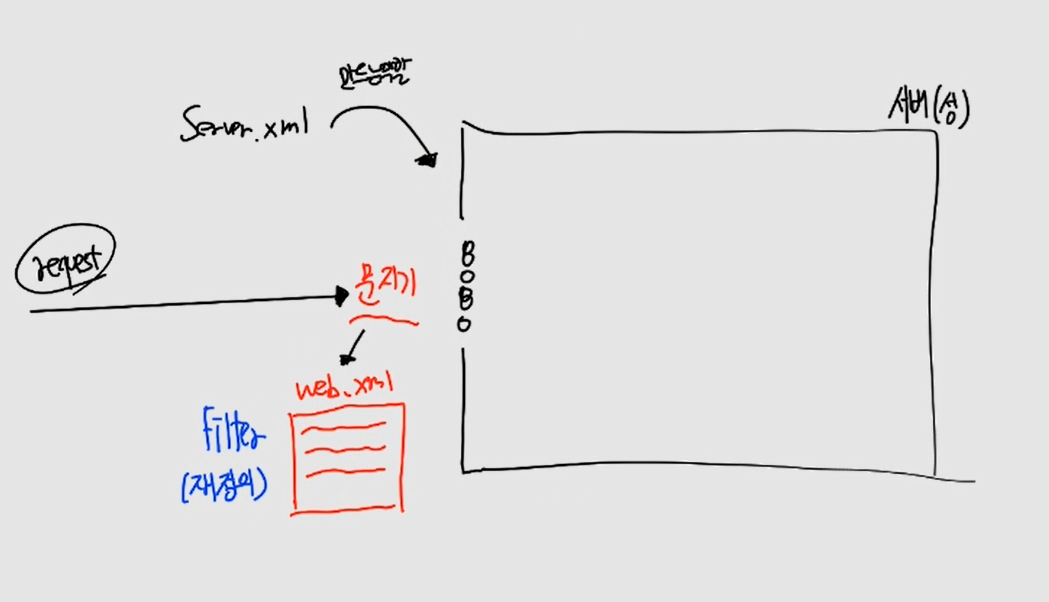 만드는역할
Server.xml
서버(성)
request
문지기
B
O
B
O
web.xml
Filter
(재정의)